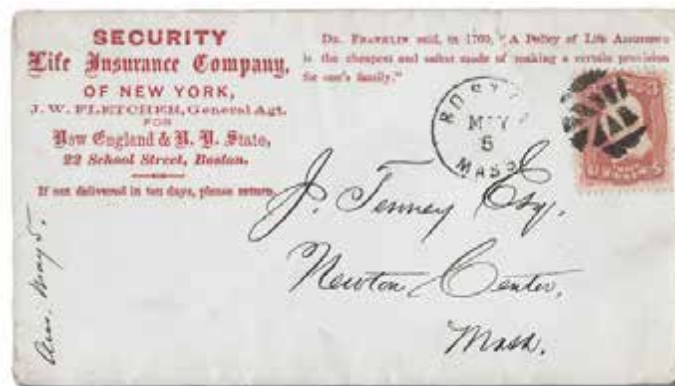 SECURITY
Life Insurance Company,
OF NEW YORK,
J. W. FLETCHER, General Agt.
FOR
New England & N. Y. State,
22 School Street, Boston.
If not delivered in ten days, please return.
DR. FRANKLIN said, in 1769, "A Policy of Life Assurance
is the cheapest and safest mode of making a certain provision
for one's family."
BOSTON
MAY
5
MASS.
J. Tenney Esq.
Newton Center,
Mass.
Ans. May 5.